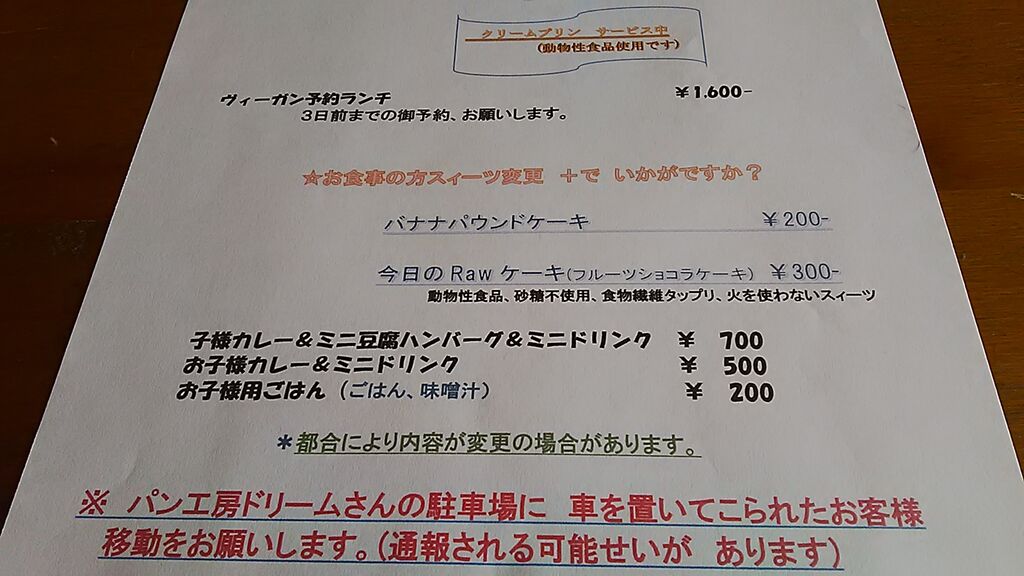 クリームプリン サービス中
(動物性食品使用です)
ヴィーガン予約ランチ ￥1.600-
3日前までの御予約、お願いします。
☆お食事の方スィーツ変更 ＋で いかがですか？
バナナパウンドケーキ ￥200-
今日のRawケーキ(フルーツショコラケーキ) ￥300-
動物性食品、砂糖不使用、食物繊維タップリ、火を使わないスィーツ
子様カレー＆ミニ豆腐ハンバーグ＆ミニドリンク ￥ 700
お子様カレー＆ミニドリンク ￥ 500
お子様用ごはん (ごはん、味噌汁) ￥ 200
＊都合により内容が変更の場合があります。
※ パン工房ドリームさんの駐車場に 車を置いてこられたお客様
移動をお願いします。(通報される可能せいが あります)